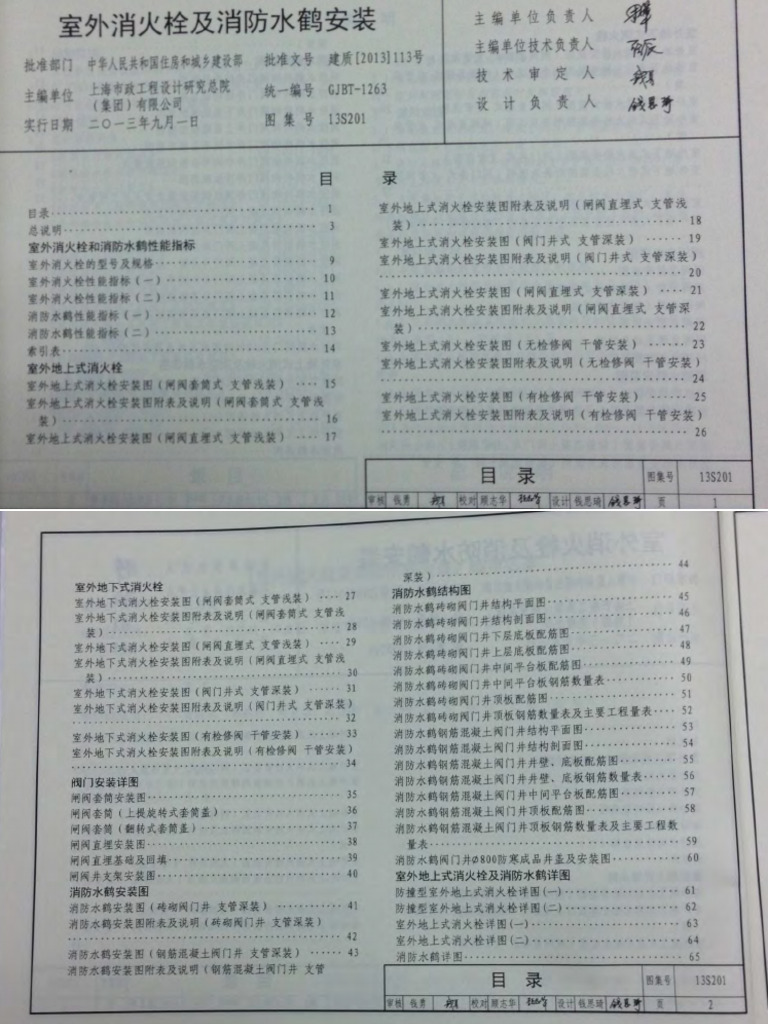 室外消火栓及消防水鹤安装
批准部门 中华人民共和国住房和城乡建设部 批准文号 建质[2013]113号
主编单位 上海市政工程设计研究总院（集团）有限公司 统一编号 GJBT-1263
实行日期 二〇一三年九月一日 图集号 13S201
主编单位负责人
主编单位技术负责人
技术审定人
设计负责人
目 录
目录 1
总说明 3
室外消火栓和消防水鹤性能指标
室外消火栓的型号及规格 9
室外消火栓性能指标(一) 10
室外消火栓性能指标(二) 11
消防水鹤性能指标(一) 12
消防水鹤性能指标(二) 13
索引表 14
室外地上式消火栓
室外地上式消火栓安装图(闸阀套筒式 支管浅装) 15
室外地上式消火栓安装图附表及说明(闸阀套筒式 支管浅
装) 16
室外地上式消火栓安装图(闸阀直埋式 支管浅装) 17
室外地上式消火栓安装图附表及说明(闸阀直埋式 支管浅
装) 18
室外地上式消火栓安装图(阀门井式 支管深装) 19
室外地上式消火栓安装图附表及说明(阀门井式 支管深装)
20
室外地上式消火栓安装图(闸阀直埋式 支管深装) 21
室外地上式消火栓安装图附表及说明(闸阀直埋式 支管深
装) 22
室外地上式消火栓安装图(无检修阀 干管安装) 23
室外地上式消火栓安装图附表及说明(无检修阀 干管安装)
24
室外地上式消火栓安装图(有检修阀 干管安装) 25
室外地上式消火栓安装图附表及说明(有检修阀 干管安装)
26
目 录 图集号 13S201
审核 钱勇 校对 顾志华 设计 钱思琦 页 1
室外地下式消火栓
室外地下式消火栓安装图(闸阀套筒式 支管浅装) 27
室外地下式消火栓安装图附表及说明(闸阀套筒式 支管浅
装) 28
室外地下式消火栓安装图(闸阀直埋式 支管浅装) 29
室外地下式消火栓安装图附表及说明(闸阀直埋式 支管浅
装) 30
室外地下式消火栓安装图(阀门井式 支管深装) 31
室外地下式消火栓安装图附表及说明(阀门井式 支管深装)
32
室外地下式消火栓安装图(有检修阀 干管安装) 33
室外地下式消火栓安装图附表及说明(有检修阀 干管安装)
34
阀门安装详图
闸阀套筒安装图 35
闸阀套筒(上提旋转式套筒盖) 36
闸阀套筒(翻转式套筒盖) 37
闸阀直埋安装图 38
闸阀直埋基础及回填 39
闸阀井支架安装图 40
消防水鹤安装图
消防水鹤安装图(砖砌阀门井 支管深装) 41
消防水鹤安装图附表及说明(砖砌阀门井 支管深装)
42
消防水鹤安装图(钢筋混凝土阀门井 支管深装) 43
消防水鹤安装图附表及说明(钢筋混凝土阀门井 支管
深装) 44
消防水鹤结构图
消防水鹤砖砌阀门井结构平面图 45
消防水鹤砖砌阀门井结构剖面图 46
消防水鹤砖砌阀门井下层底板配筋图 47
消防水鹤砖砌阀门井上层底板配筋图 48
消防水鹤砖砌阀门井中间平台板配筋图 49
消防水鹤砖砌阀门井中间平台板钢筋数量表 50
消防水鹤砖砌阀门井顶板配筋图 51
消防水鹤砖砌阀门井顶板钢筋数量表及主要工程量表 52
消防水鹤钢筋混凝土阀门井结构平面图 53
消防水鹤钢筋混凝土阀门井结构剖面图 54
消防水鹤钢筋混凝土阀门井井壁、底板配筋图 55
消防水鹤钢筋混凝土阀门井井壁、底板钢筋数量表 56
消防水鹤钢筋混凝土阀门井中间平台板配筋图 57
消防水鹤钢筋混凝土阀门井顶板配筋图 58
消防水鹤钢筋混凝土阀门井顶板钢筋数量表及主要工程数
量表 59
消防水鹤阀门井Ø800防寒成品井盖及安装图 60
室外地上式消火栓及消防水鹤详图
防撞型室外地上式消火栓详图(一) 61
防撞型室外地上式消火栓详图(二) 62
室外地上式消火栓详图(一) 63
室外地上式消火栓详图(二) 64
消防水鹤详图 65
目 录 图集号 13S201
审核 钱勇 校对 顾志华 设计 钱思琦 页 2